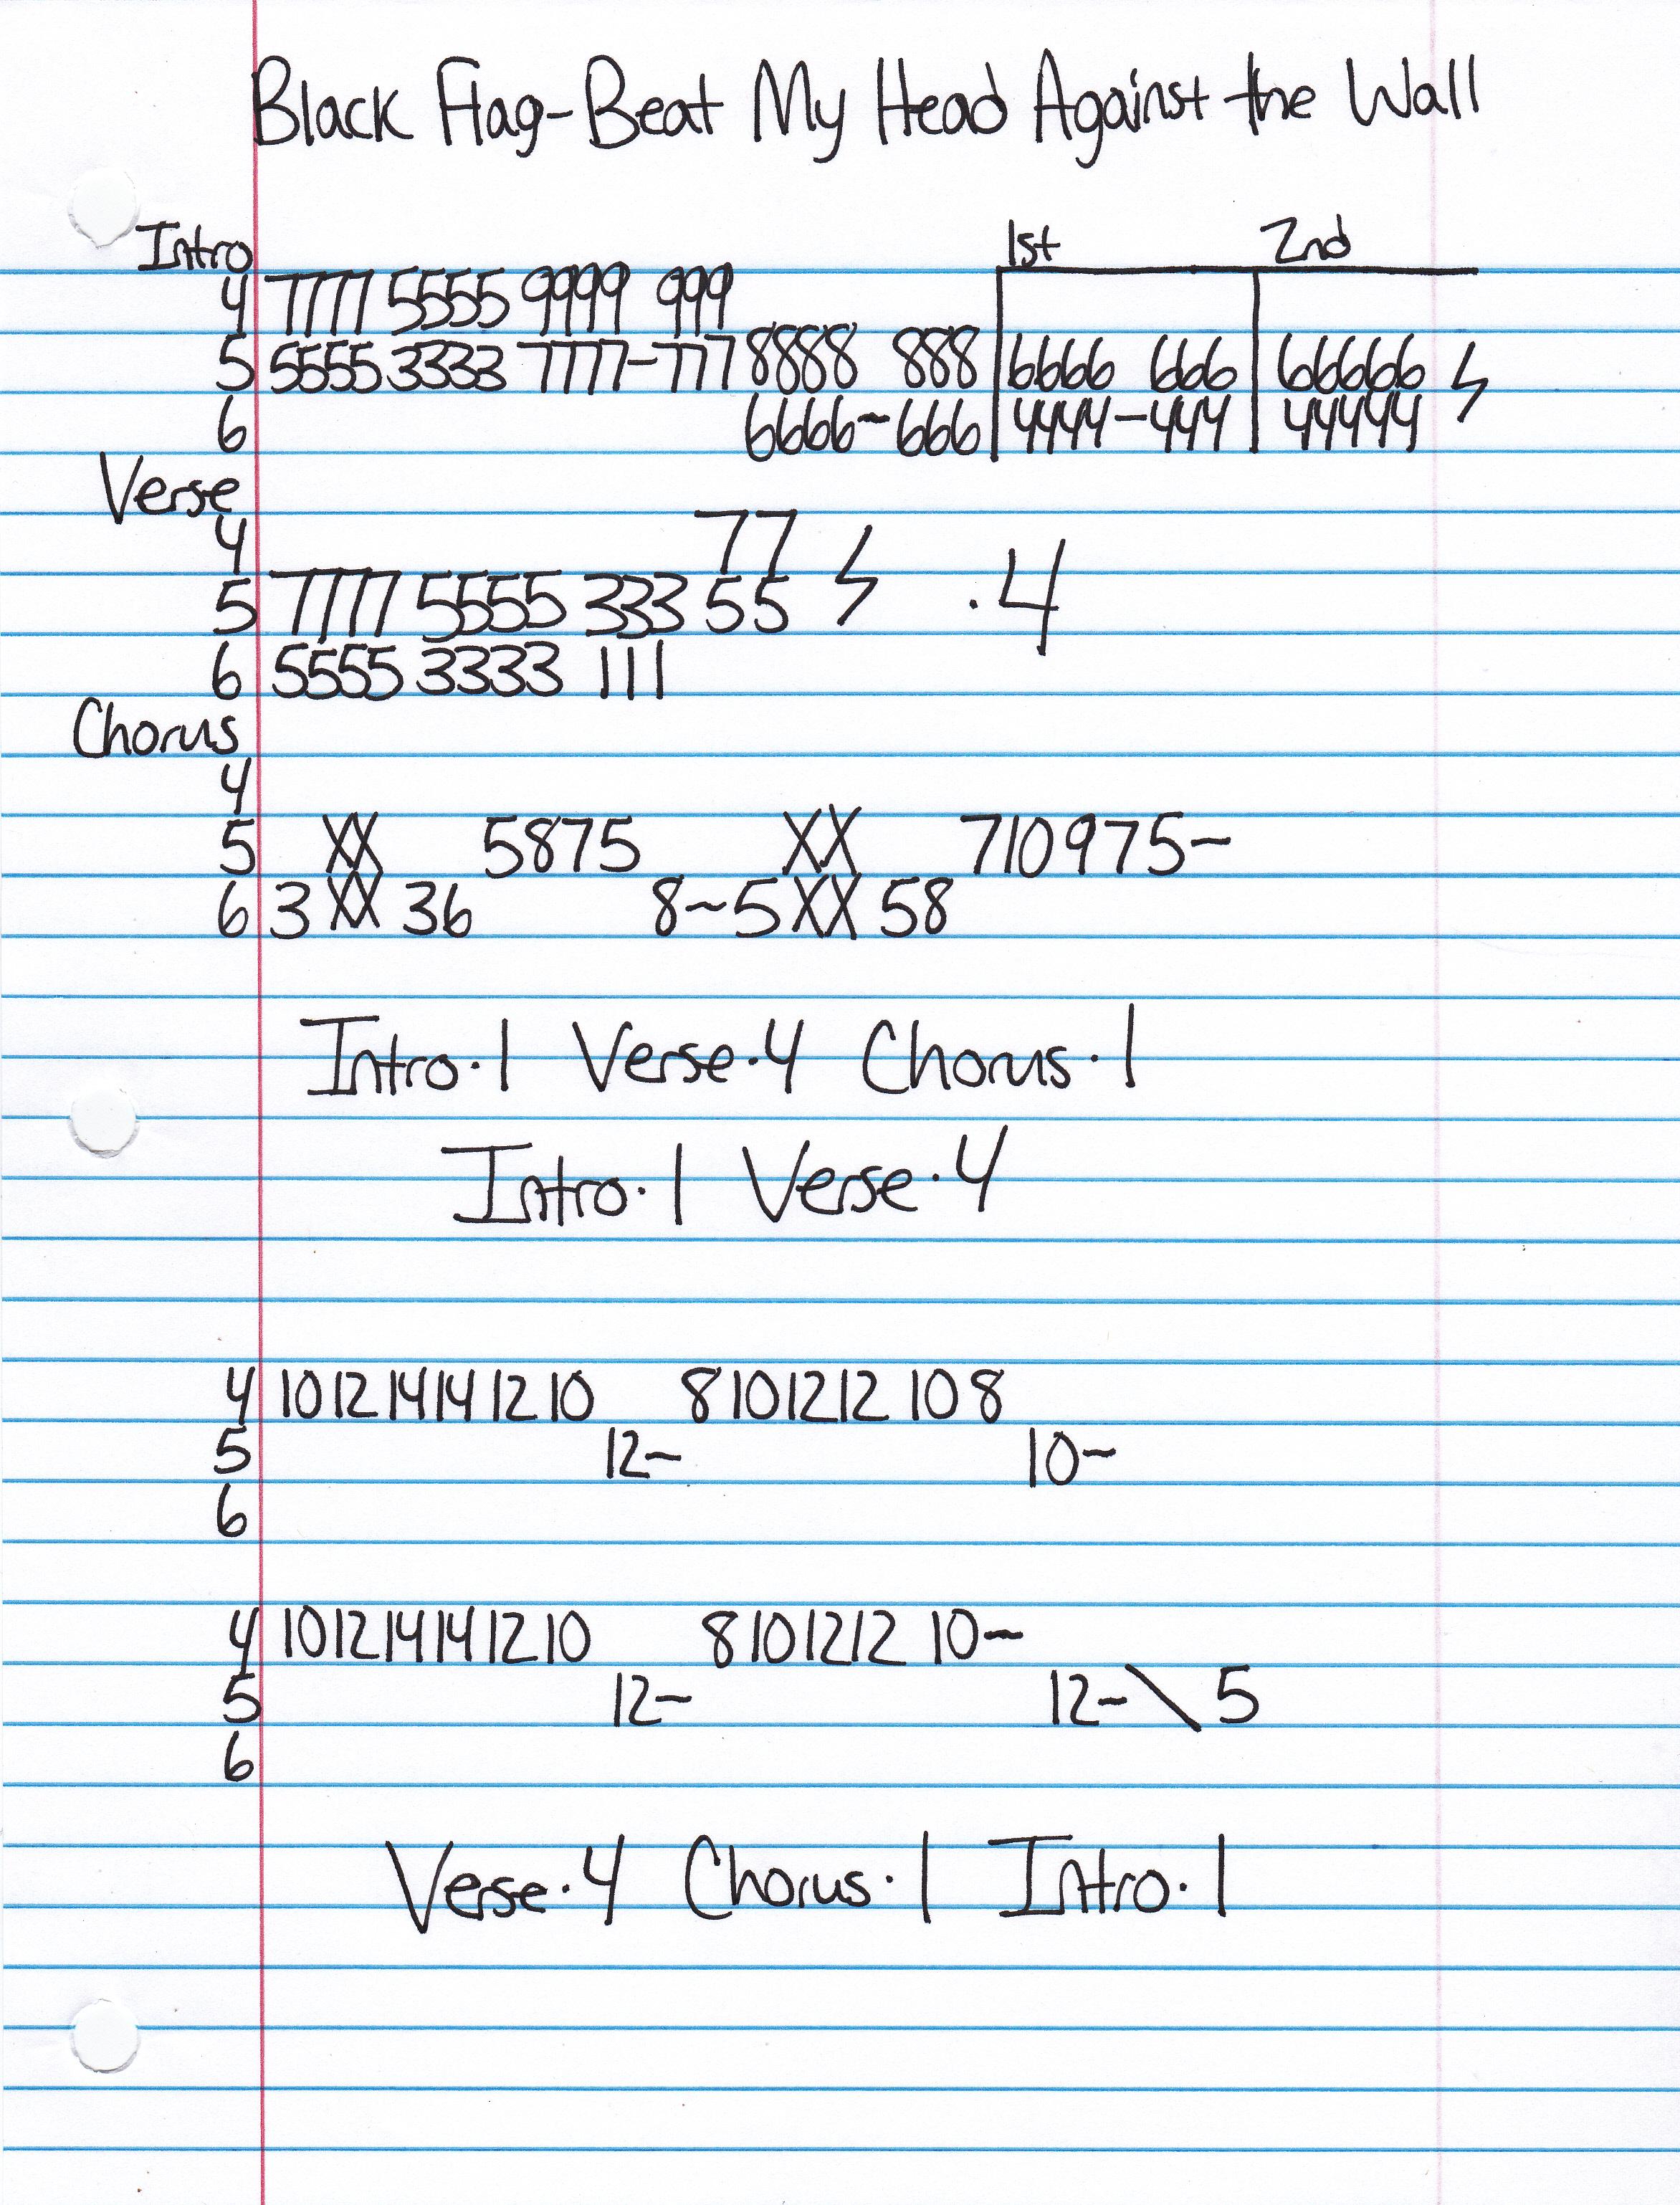 Black Flag-Beat My Head Against the Wall
Intro 1st 2nd
4 7777 5555 9999 999
5 5555 3333 7777-777 8888 888 6666 666 66666
6 6666~666 4444-444 44444
Verse
4 77
5 7777 5555 333 55 .4
6 5555 3333 111
Chorus
4
5 XX 5875 XX 710975~
6 3 XX 36 8~5 XX 58
Intro·1 Verse·4 Chorus·1
Intro·1 Verse·4
4 10 12 14 14 12 10 8 10 12 12 10 8
5 12~ 10~
6
4 10 12 14 14 12 10 8 10 12 12 10~
5 12~ 12~\5
6
Verse·4 Chorus·1 Intro·1